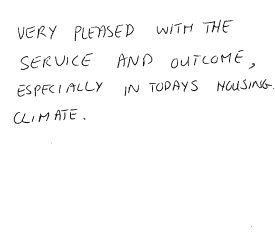 VERY PLEASED WITH THE
SERVICE AND OUTCOME,
ESPECIALLY IN TODAYS HOUSING.
CLIMATE.